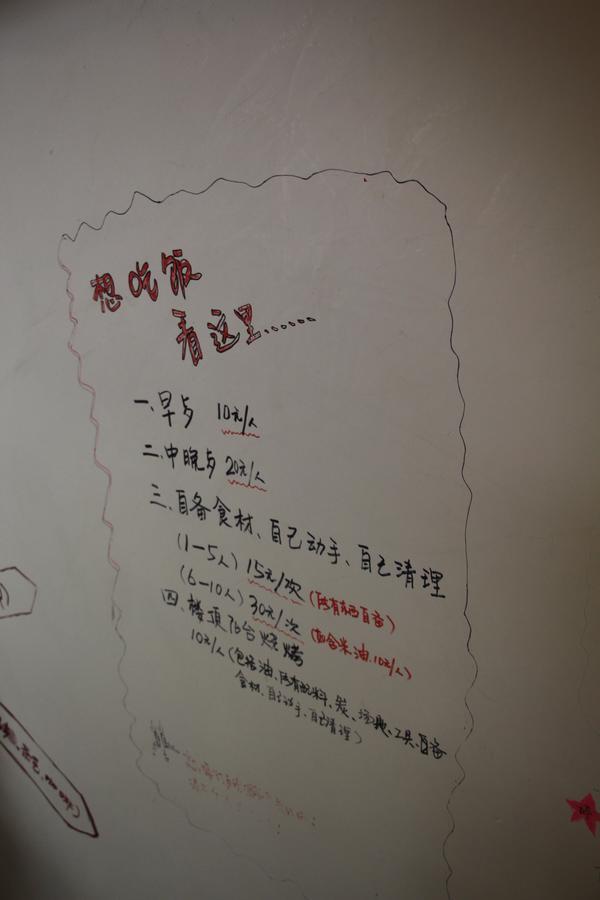 想吃饭
看这里......
一.早点 10元/人
二.中晚点 20元/人
三.自备食材、自己动手、自己清理
(1-5人) 15元/次 (所有东西自备)
(6-10人) 30元/次 (如含米.油.10元/人)
四.楼顶阳台烧烤
10元/人(包括油、所有配料、炭、场地、工具、自备
食材、自己动手、自己清理)